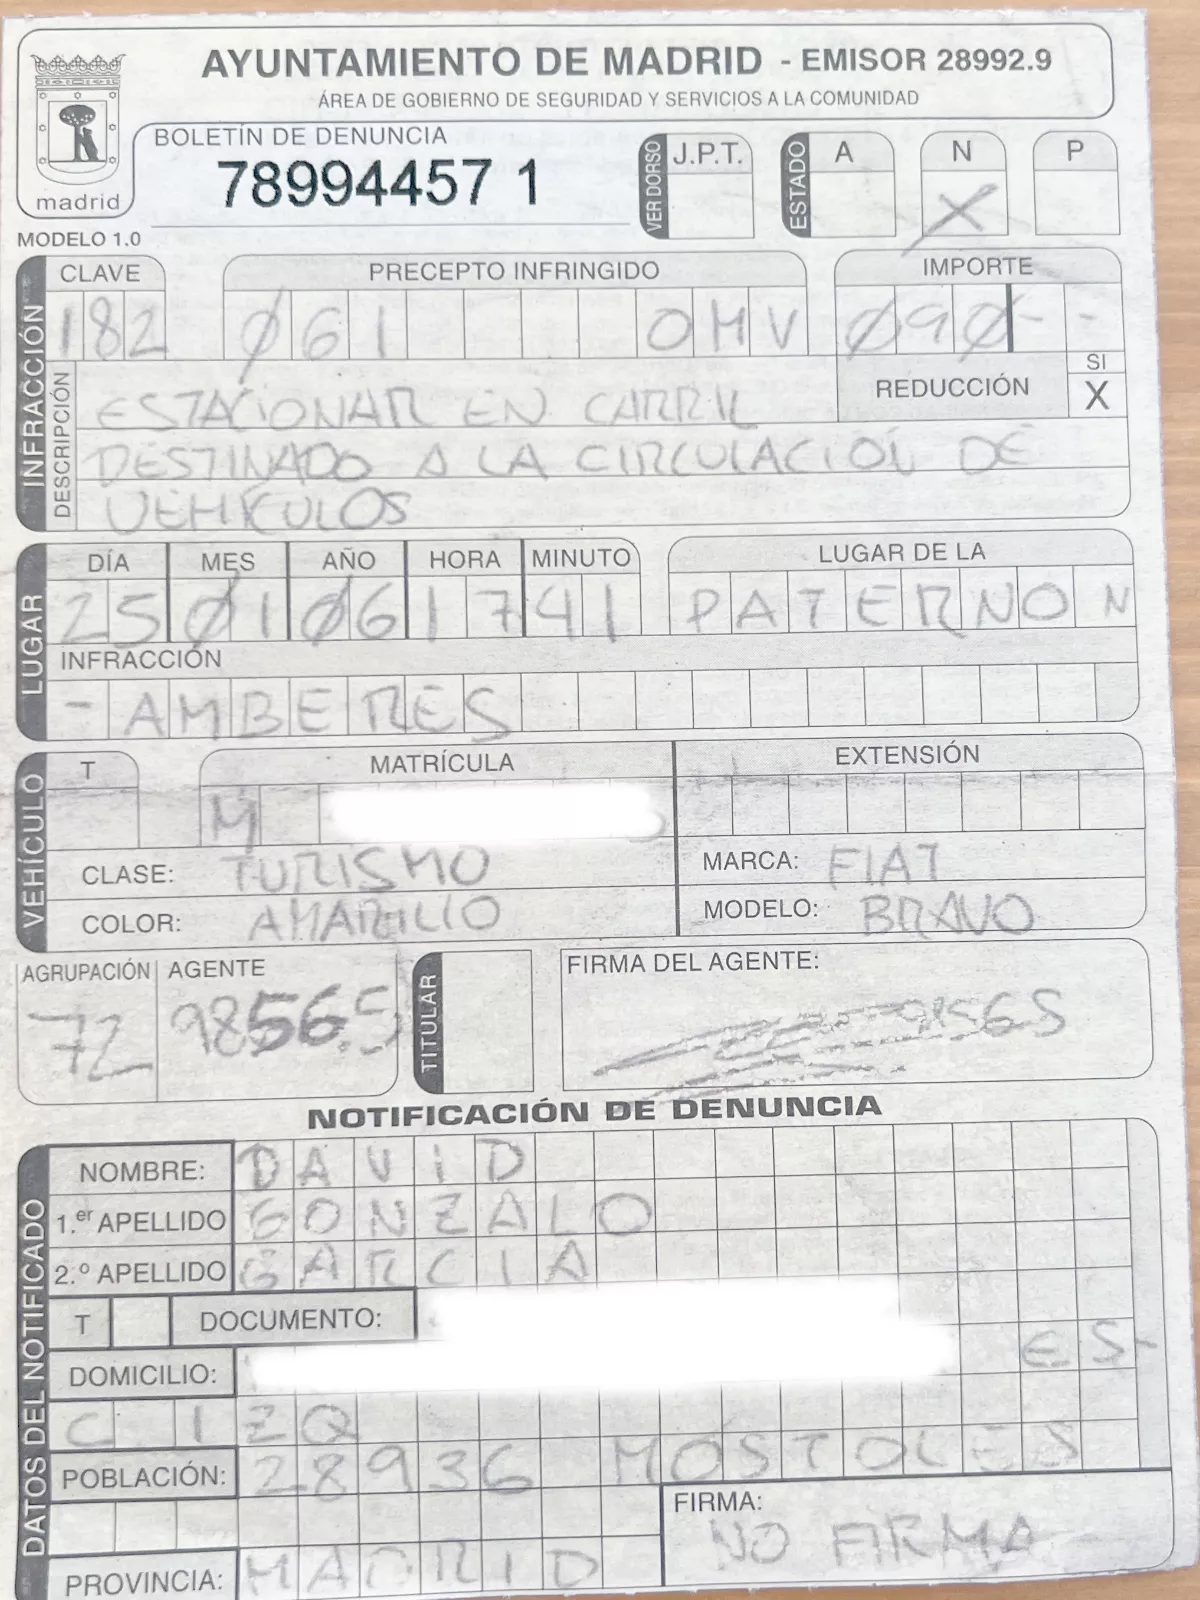 AYUNTAMIENTO DE MADRID - EMISOR 28992.9
ÁREA DE GOBIERNO DE SEGURIDAD Y SERVICIOS A LA COMUNIDAD
madrid
BOLETÍN DE DENUNCIA
78994457 1
VER DORSO J.P.T.
ESTADO A N P
X
MODELO 1.0
INFRACCIÓN
CLAVE PRECEPTO INFRINGIDO IMPORTE
182 Ø61 OMV Ø9Ø--
REDUCCIÓN SI X
DESCRIPCIÓN
ESTACIONAR EN CARRIL
DESTINADO A LA CIRCULACIÓN DE
VEHICULOS
LUGAR
DÍA MES AÑO HORA MINUTO LUGAR DE LA
25 Ø1 Ø6 17 41 PATERNON
INFRACCIÓN
- AMBERES
VEHÍCULO
T MATRÍCULA EXTENSIÓN
M
CLASE: TURISMO MARCA: FIAT
COLOR: AMARILLO MODELO: BRAVO
AGRUPACIÓN AGENTE TITULAR FIRMA DEL AGENTE:
72 98565 98565
NOTIFICACIÓN DE DENUNCIA
DATOS DEL NOTIFICADO
NOMBRE: DAVID
1.er APELLIDO GONZALO
2.º APELLIDO GARCIA
T DOCUMENTO:
DOMICILIO: ES-
C IZQ
POBLACIÓN: 28936 MOSTOLES
FIRMA:
NO FIRMA
PROVINCIA: MADRID